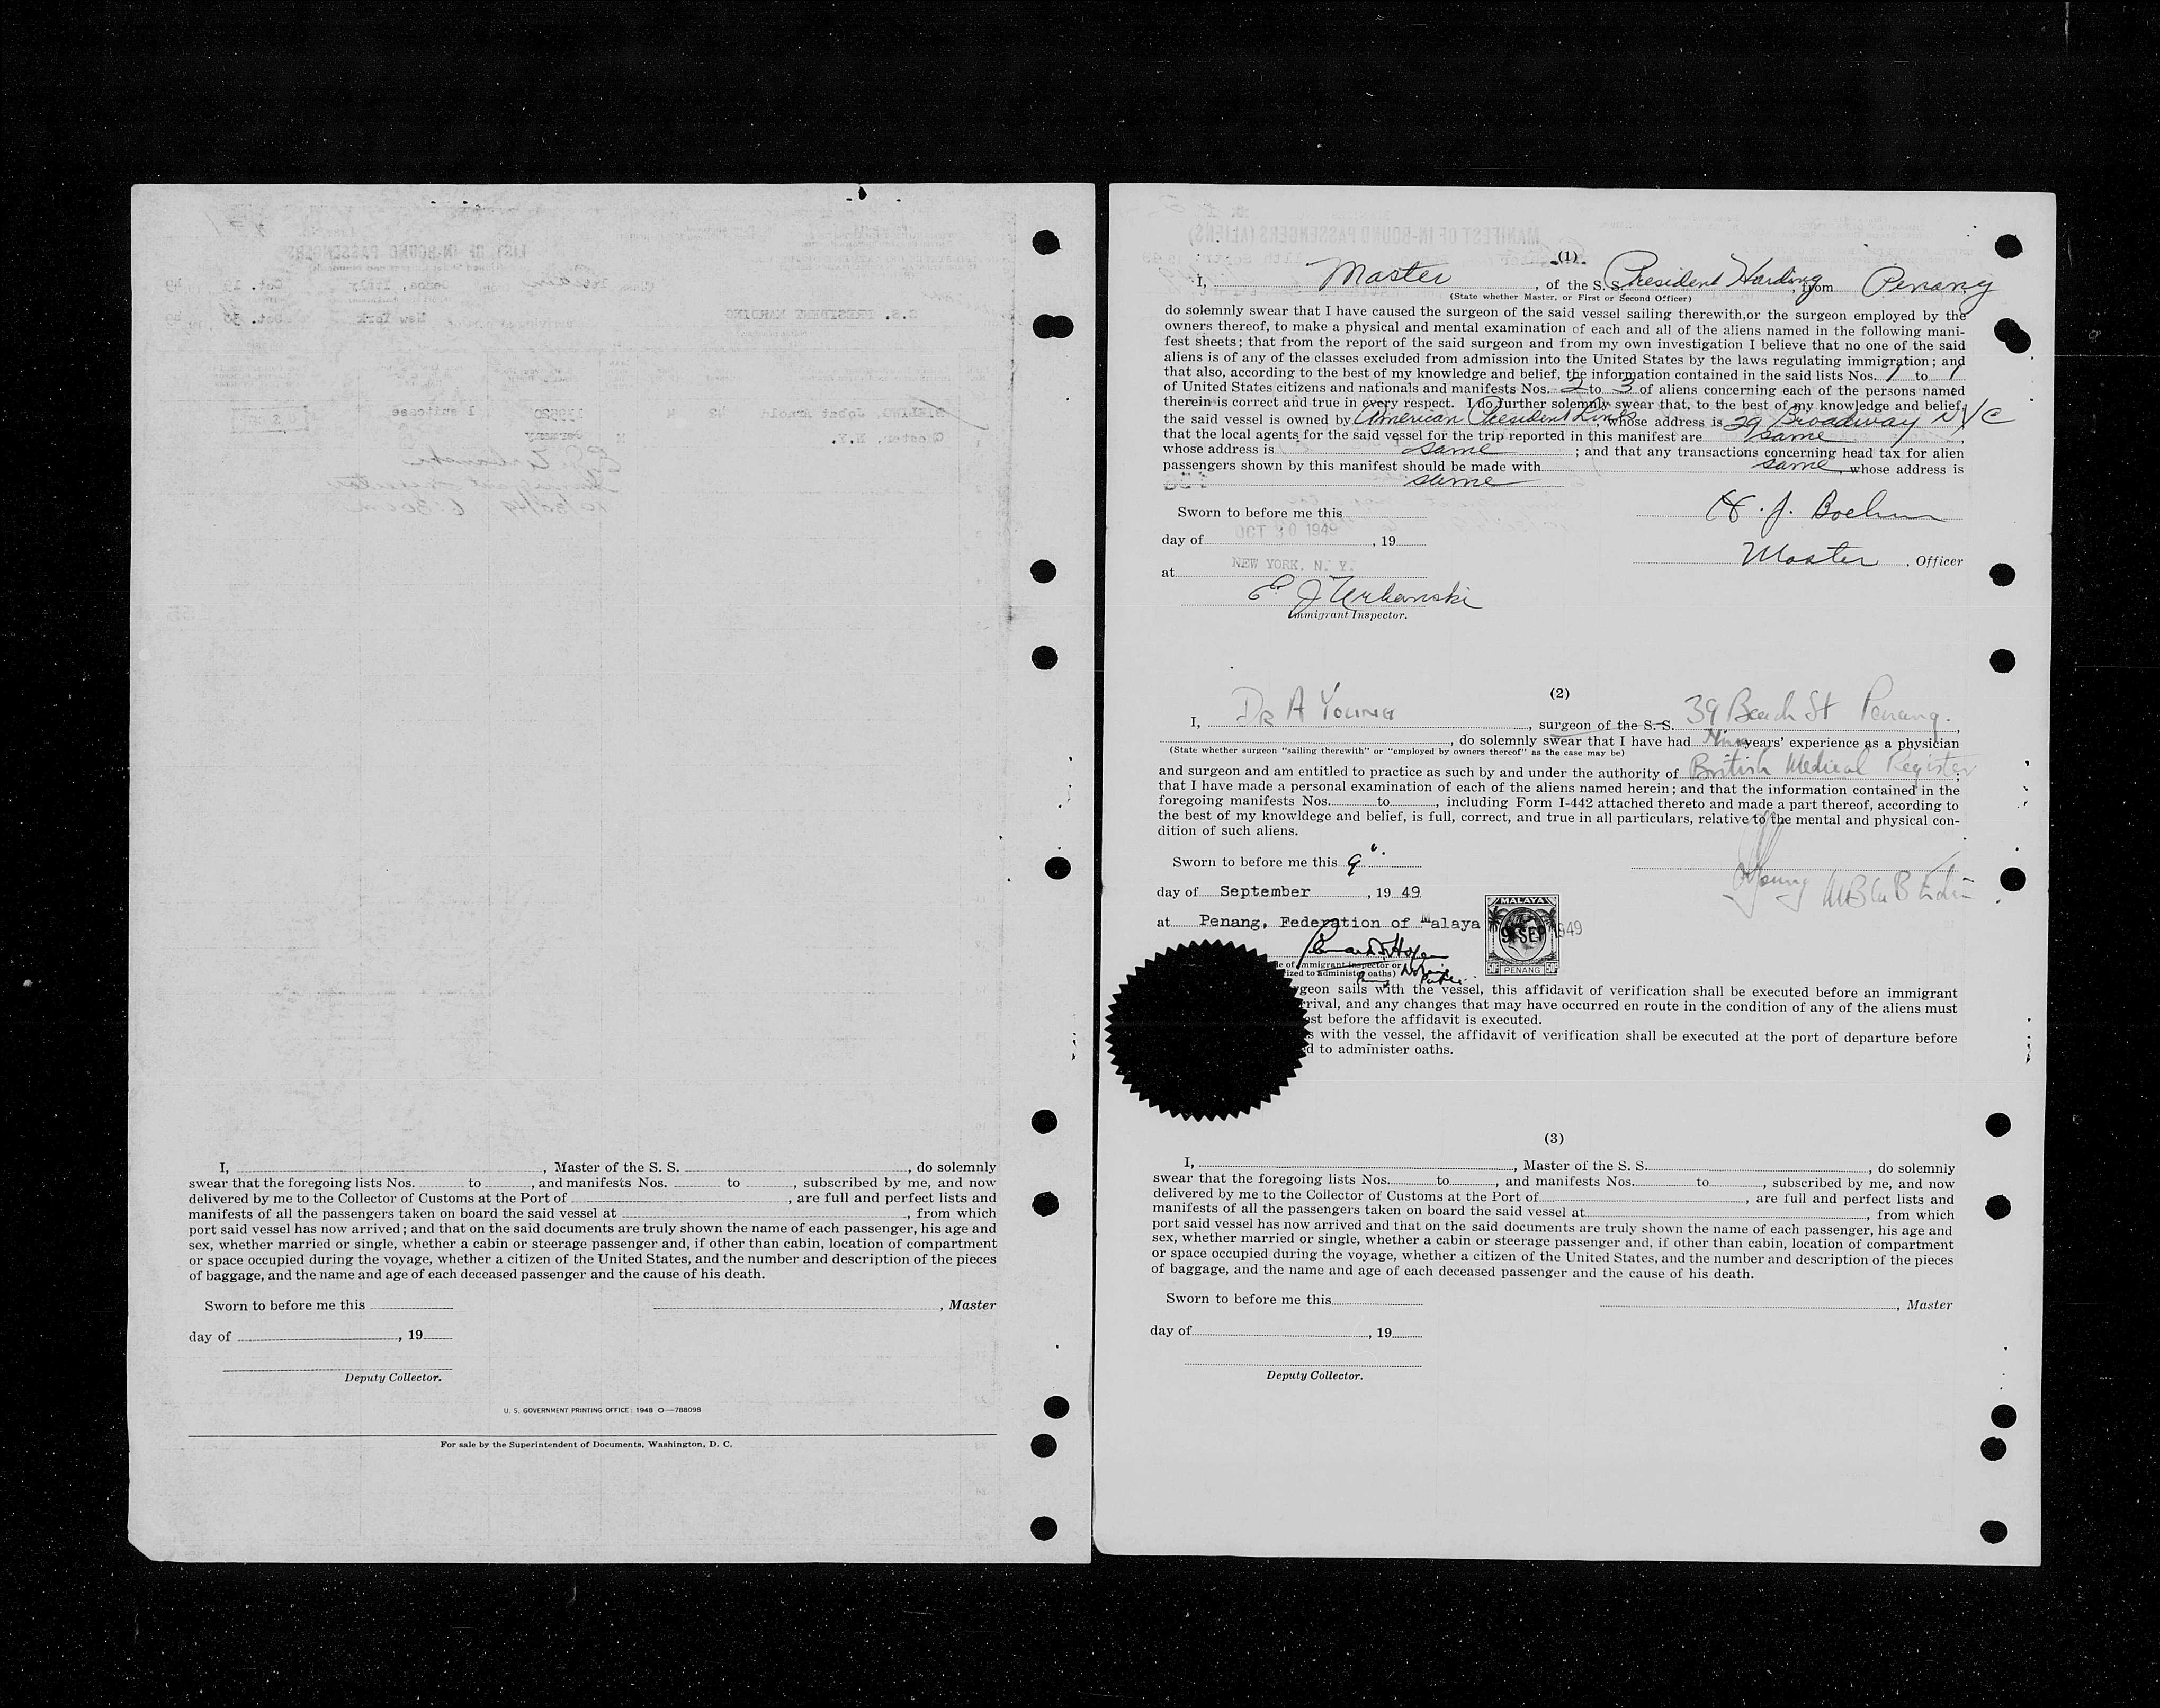 I, , Master of the S. S. , do solemnly
swear that the foregoing lists Nos. to , and manifests Nos. to , subscribed by me, and now
delivered by me to the Collector of Customs at the Port of , are full and perfect lists and
manifests of all the passengers taken on board the said vessel at , from which
port said vessel has now arrived; and that on the said documents are truly shown the name of each passenger, his age and
sex, whether married or single, whether a cabin or steerage passenger and, if other than cabin, location of compartment
or space occupied during the voyage, whether a citizen of the United States, and the number and description of the pieces
of baggage, and the name and age of each deceased passenger and the cause of his death.
Sworn to before me this
, Master
day of , 19
Deputy Collector.
U. S. GOVERNMENT PRINTING OFFICE: 1948 O—788098
For sale by the Superintendent of Documents, Washington, D. C.
(1)
I, Master , of the S. S. President Harding, from Penang
(State whether Master, or First or Second Officer)
do solemnly swear that I have caused the surgeon of the said vessel sailing therewith, or the surgeon employed by the
owners thereof, to make a physical and mental examination of each and all of the aliens named in the following mani-
fest sheets; that from the report of the said surgeon and from my own investigation I believe that no one of the said
aliens is of any of the classes excluded from admission into the United States by the laws regulating immigration; and
that also, according to the best of my knowledge and belief, the information contained in the said lists Nos. 1 to 1
of United States citizens and nationals and manifests Nos. 2 to 3 of aliens concerning each of the persons named
therein is correct and true in every respect. I do further solemnly swear that, to the best of my knowledge and belief,
the said vessel is owned by American President Lines, whose address is 29 Broadway NYC
that the local agents for the said vessel for the trip reported in this manifest are same ,
whose address is same ; and that any transactions concerning head tax for alien
passengers shown by this manifest should be made with same, whose address is
same
Sworn to before me this
H. J. Boehm
day of OCT 30 1949 , 19
Master , Officer
at NEW YORK, N. Y.
E J Urbanski
Immigrant Inspector.
(2)
I, DR A YOUNG , surgeon of the S. S. 39 Beach St Penang. ,
, do solemnly swear that I have had Nine years' experience as a physician
(State whether surgeon "sailing therewith" or "employed by owners thereof" as the case may be)
and surgeon and am entitled to practice as such by and under the authority of British Medical Register ;
that I have made a personal examination of each of the aliens named herein; and that the information contained in the
foregoing manifests Nos. to , including Form I-442 attached thereto and made a part thereof, according to
the best of my knowldege and belief, is full, correct, and true in all particulars, relative to the mental and physical con-
dition of such aliens.
Sworn to before me this 9"
AYoung MB Ch B Edin
day of September , 19 49
MALAYA
at Penang, Federation of Malaya
9 SEP 1949
PENANG
le of immigrant inspector or
ized to administer oaths) Notary
Public
rgeon sails with the vessel, this affidavit of verification shall be executed before an immigrant
rrival, and any changes that may have occurred en route in the condition of any of the aliens must
est before the affidavit is executed.
s with the vessel, the affidavit of verification shall be executed at the port of departure before
d to administer oaths.
(3)
I, , Master of the S. S. , do solemnly
swear that the foregoing lists Nos. to , and manifests Nos. to , subscribed by me, and now
delivered by me to the Collector of Customs at the Port of , are full and perfect lists and
manifests of all the passengers taken on board the said vessel at , from which
port said vessel has now arrived and that on the said documents are truly shown the name of each passenger, his age and
sex, whether married or single, whether a cabin or steerage passenger and, if other than cabin, location of compartment
or space occupied during the voyage, whether a citizen of the United States, and the number and description of the pieces
of baggage, and the name and age of each deceased passenger and the cause of his death.
Sworn to before me this
, Master
day of , 19
Deputy Collector.